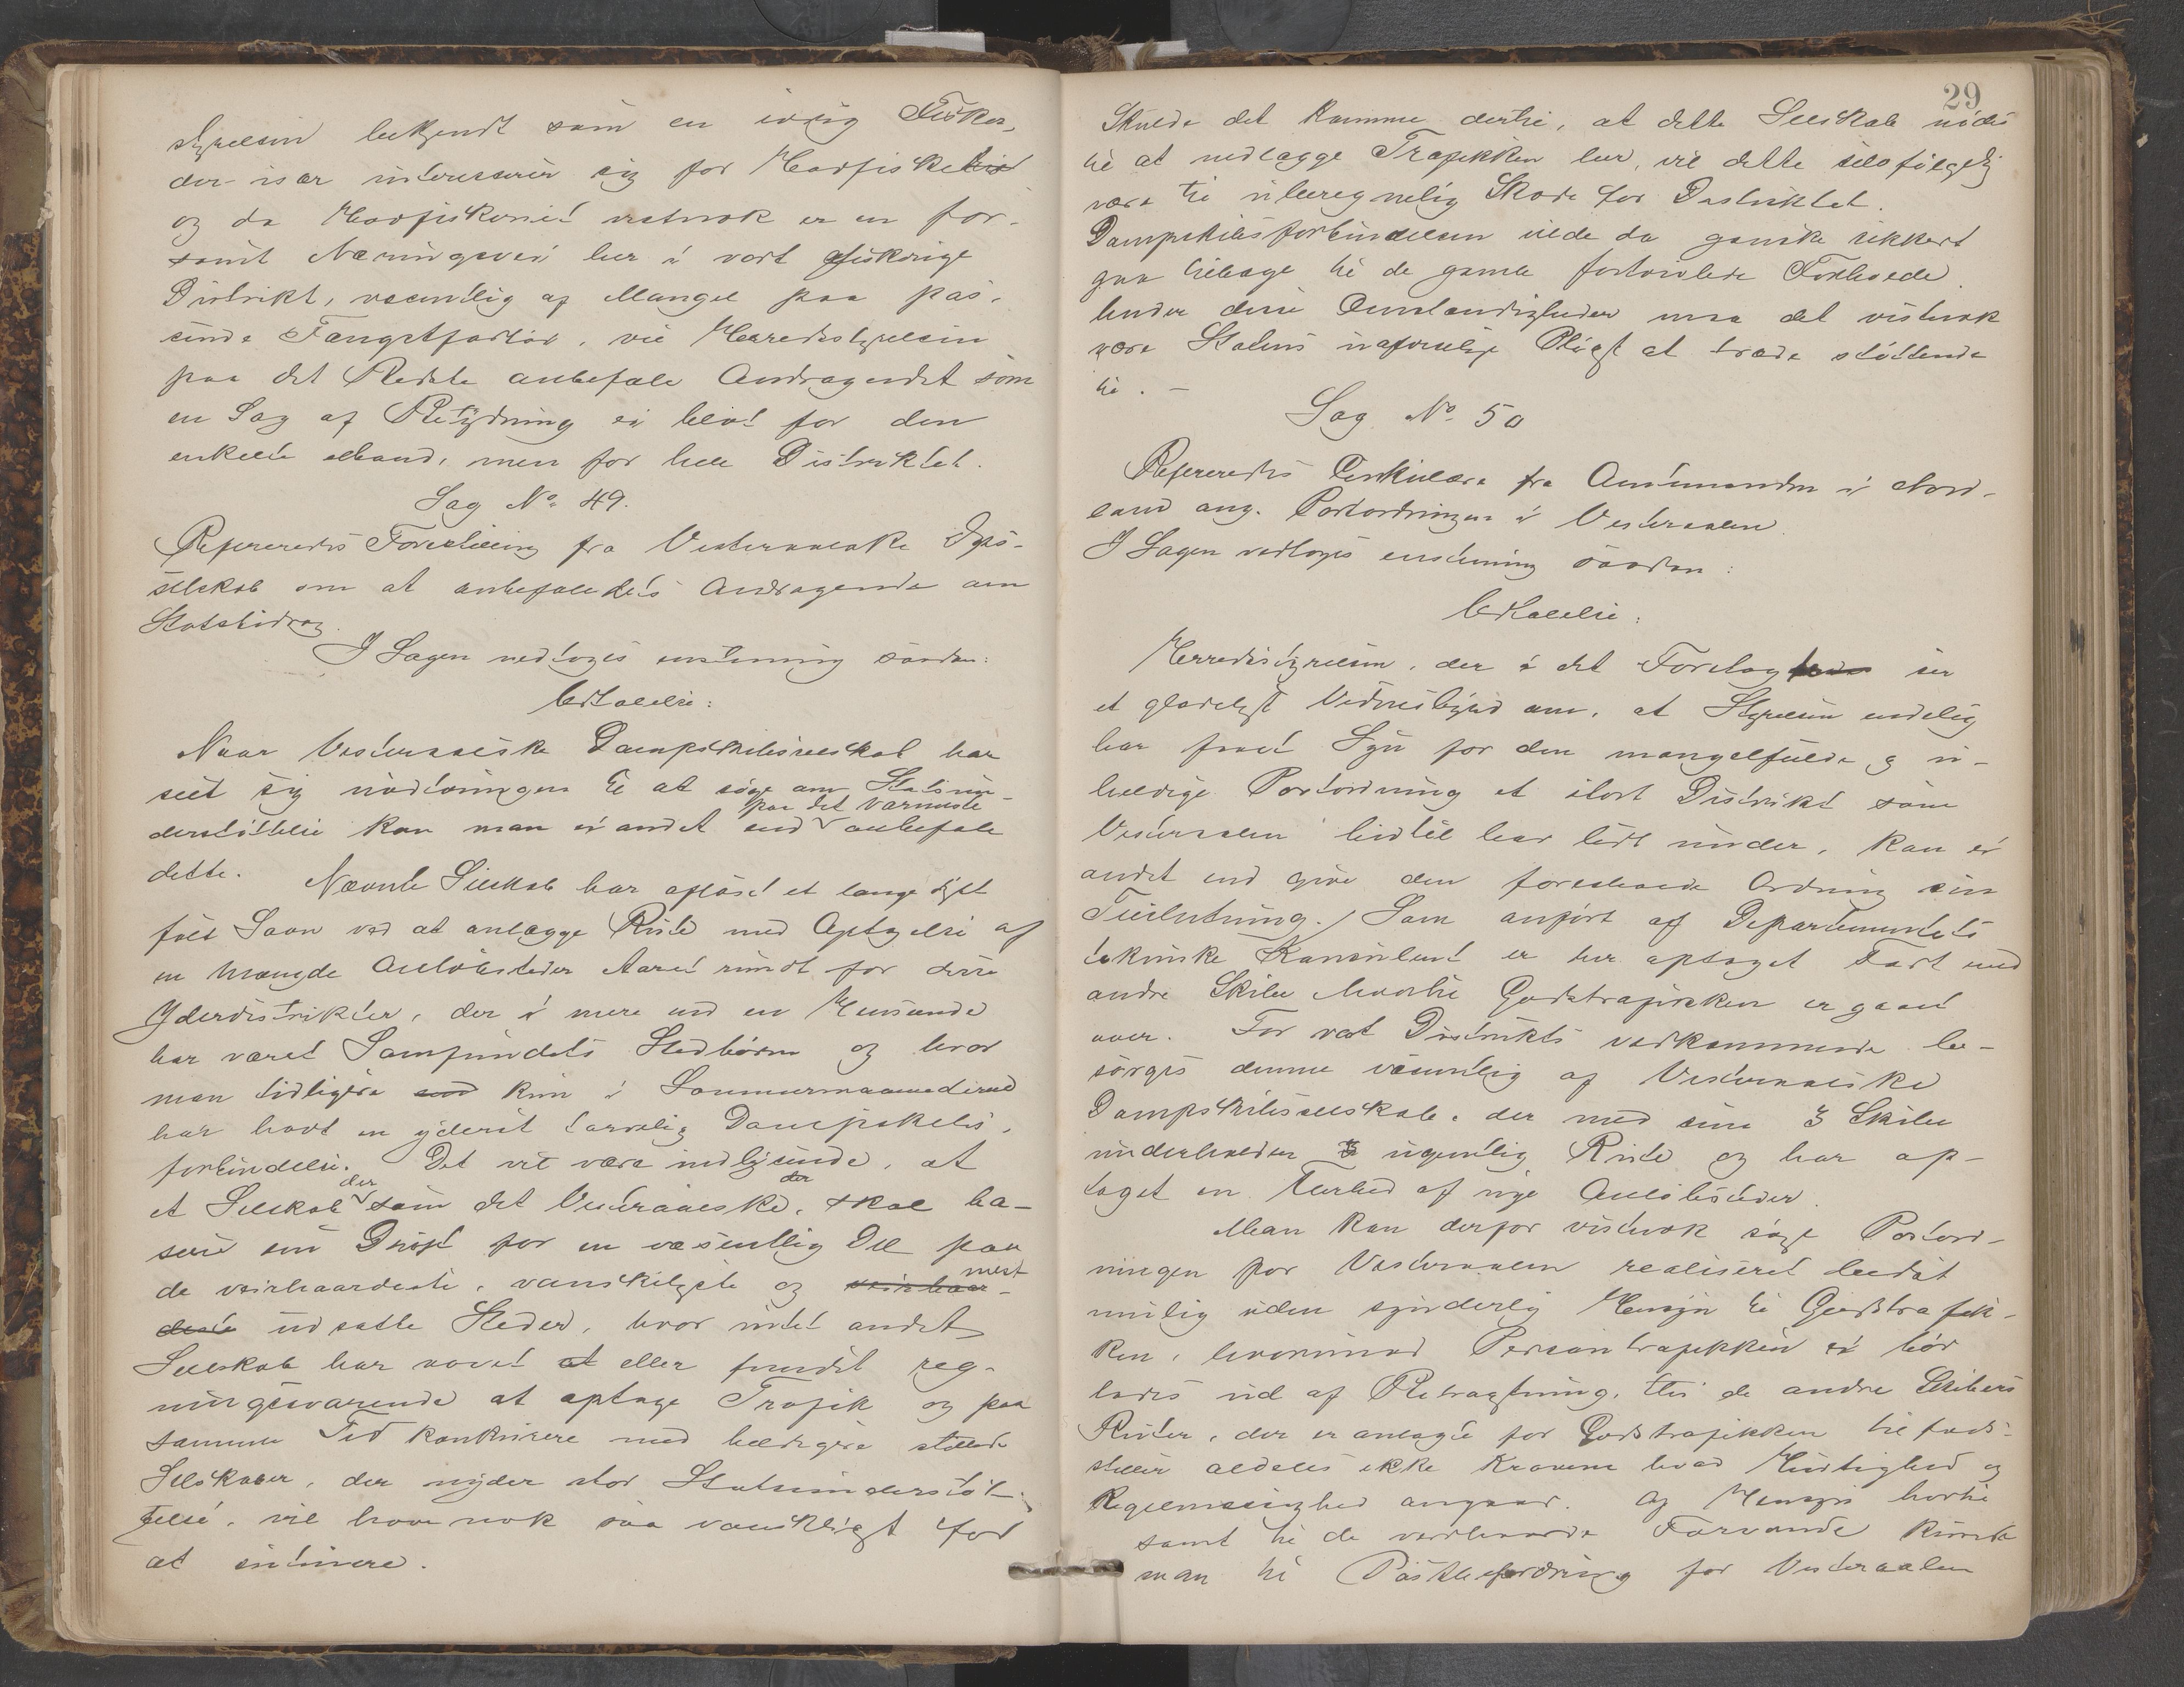 styrelsen bekjendt som en ivrig Fisker,
der især interesserer sig for Havfisket
og da Havfiskeriet vistnok er en for-
sømt Næringsvei her i vort fiskerige
Distrikt, væsentlig af Mangel paa pas-
sende Fangstfartøi, vil Herredsstyrelsen
paa det Bedste anbefale Andragendet som
en Sag af Betydning ei blot for den
enkelte Mand, men for hele Distriktet.
Sag No. 49.
Refereredes Forestilling fra Vesteraalske Dps-
selskab om at anbefale dets Andragende om
Statsbidrag.
I Sagen vedtoges enstemmig saadan:
Udtalelse:
Naar Vesteraalske Dampskibsselskab har
seet sig nødtvungen til at søge om Statsun-
derstøttelse kan man ei andet end paa det varmeste anbefale
dette. Nævnte Selskab har afløst et længe dybt
følt Savn ved at anlægge Rute med Optagelse af
en Mængde Anløbssteder Aaret rundt for disse
Yderdistrikter, der i mere end en Henseende
har været Samfundets Stedbørn og hvor
man tidligere end kun i Sommermaanederne
har havt en yderst tarvelig Dampskibs-
forbindelse. Det vil være indlysende, at
et Selskab der som det Vesteraalske, der skal ba-
sere sin Drift for en væsentlig Del paa
de veirhaardeste, vanskeligste og veirhaar-
deste mest udsatte Steder, hvor intet andet
Selskab har vovet at eller fundet reg-
ningssvarende at optage Trafik og paa
samme Tid konkurrere med heldigere stillede
Selskaber, der nyder stor Statsunderstøt-
telse, vil have nok saa vanskeligt for
at
29
Skulde det komme dertil, at dette Selskab nødes
til at nedlægge Trafikken her, vil dette selvfølgelig
være til uberegnelig Skade for Distriktet.
Dampskibsforbindelsen vilde da ganske sikkert
gaa tilbage til de gamle fortvivlede Forholde.
Under disse Omstændigheder maa det vistnok
være Statens uafviselige Pligt at træde støttende
til. –
Sag No. 50
Refereredes Cirkulære fra Amtmanden i Nord-
land ang. Postordningen i Vesteraalen.
I Sagen vedtoges enstemmig saadan:
Udtalelse:
Herredsstyrelsen, der i det Forelagte ser
et glædeligt Vidnesbyrd om, at Styrelsen endelig
har faaet Syn for den mangelfulde og u-
heldige Postordning et stort Distrikt som
Vesteraalen hidtil har lidt under, kan ei
andet end give den foreslaaede Ordning sin
Tilslutning. Som anført af Departementets
tekniske Konsulent er her optaget Fart med
andre Skibe hvortil Godstrafikken er gaaet
over. For vort Distrikts vedkommende be-
sørges denne væsentlig af Vesteraalske
Dampskibsselskab, der med sine 3 Skibe
underholder 3 ugentlig Rute og har op-
taget en Flerhed af nye Anløbssteder.
Man kan derfor vistnok søge Postord-
ningen for Vesteraalen realiseret bedst
mulig uden synderlig Hensyn til Godstrafik-
ken, hvorimod Persontrafikken ei bør
lades ud af Betragtning, thi de andre Skibers
Ruter, der er anlagte for Godstrafikken tilfreds-
stiller aldeles ikke Kravene hvad Hurtighed og
Regelmæssighed angaar. Af Hensyn hertil
samt til de veirhaarde Farvande
man til Postbefordring for Vesteraalen